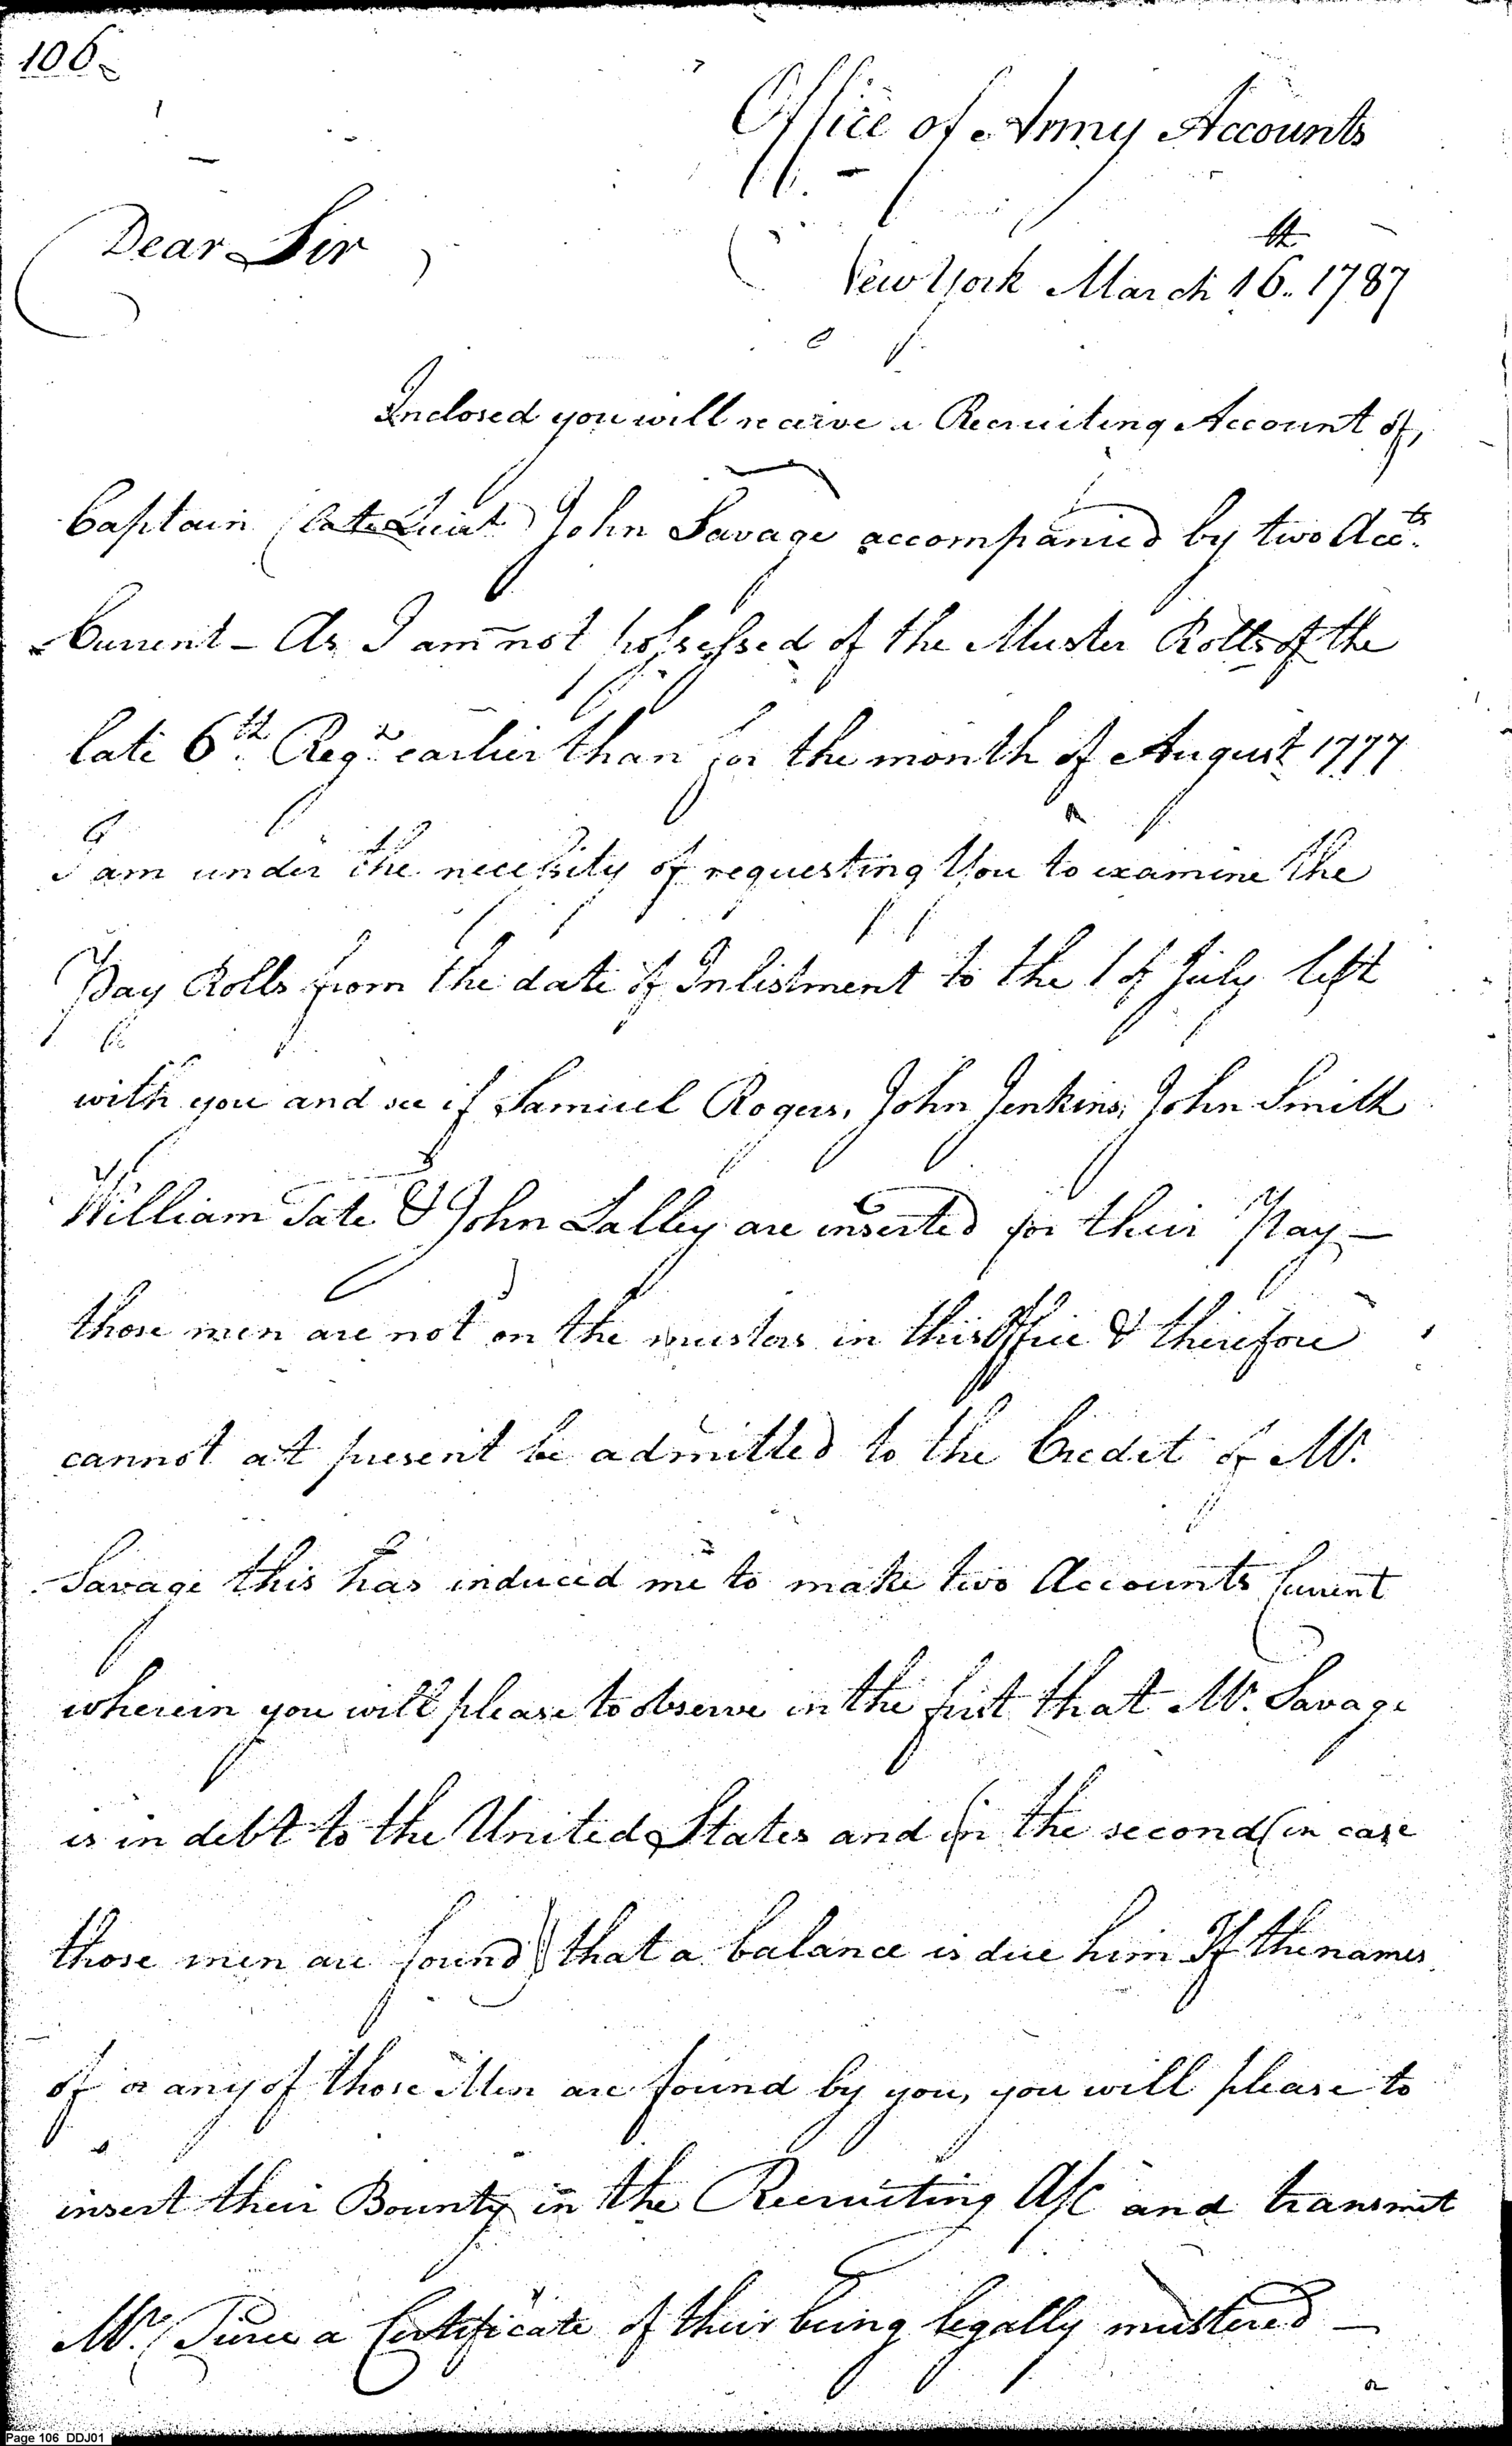 106
Office of Army Accounts
Dear Sir
New York March 16th. 1787
Inclosed you will receive a Recruiting Account of,
Captain (late Lieut) John Savage accompanied by two Accts.
Current - As I am not possessed of the Muster Rolls of the
late 6th. Regt. earlier than for the month of August 1777
I am under the necessity of requesting You to examine the
Pay Rolls from the date of Inlistment to the 1 of July left
with you and see if Samuel Rogers, John Jenkins, John Smith
William Tate & John Lalley are inserted for their Pay -
those men are not on the musters in this Office & therefore
cannot at present be admitted to the Credit of Mr.
Savage this has induced me to make two Accounts Current
wherein you will please to observe in the first that Mr. Savage
is in debt to the United States and in the second (in case
those men are found) that a balance is due him If the names
of or any of those Men are found by you, you will please to
insert their Bounty in the Recruiting A/C and transmit
Mr. Pierce a Certificate of their being legally mustered -
Page 106 DDJ01